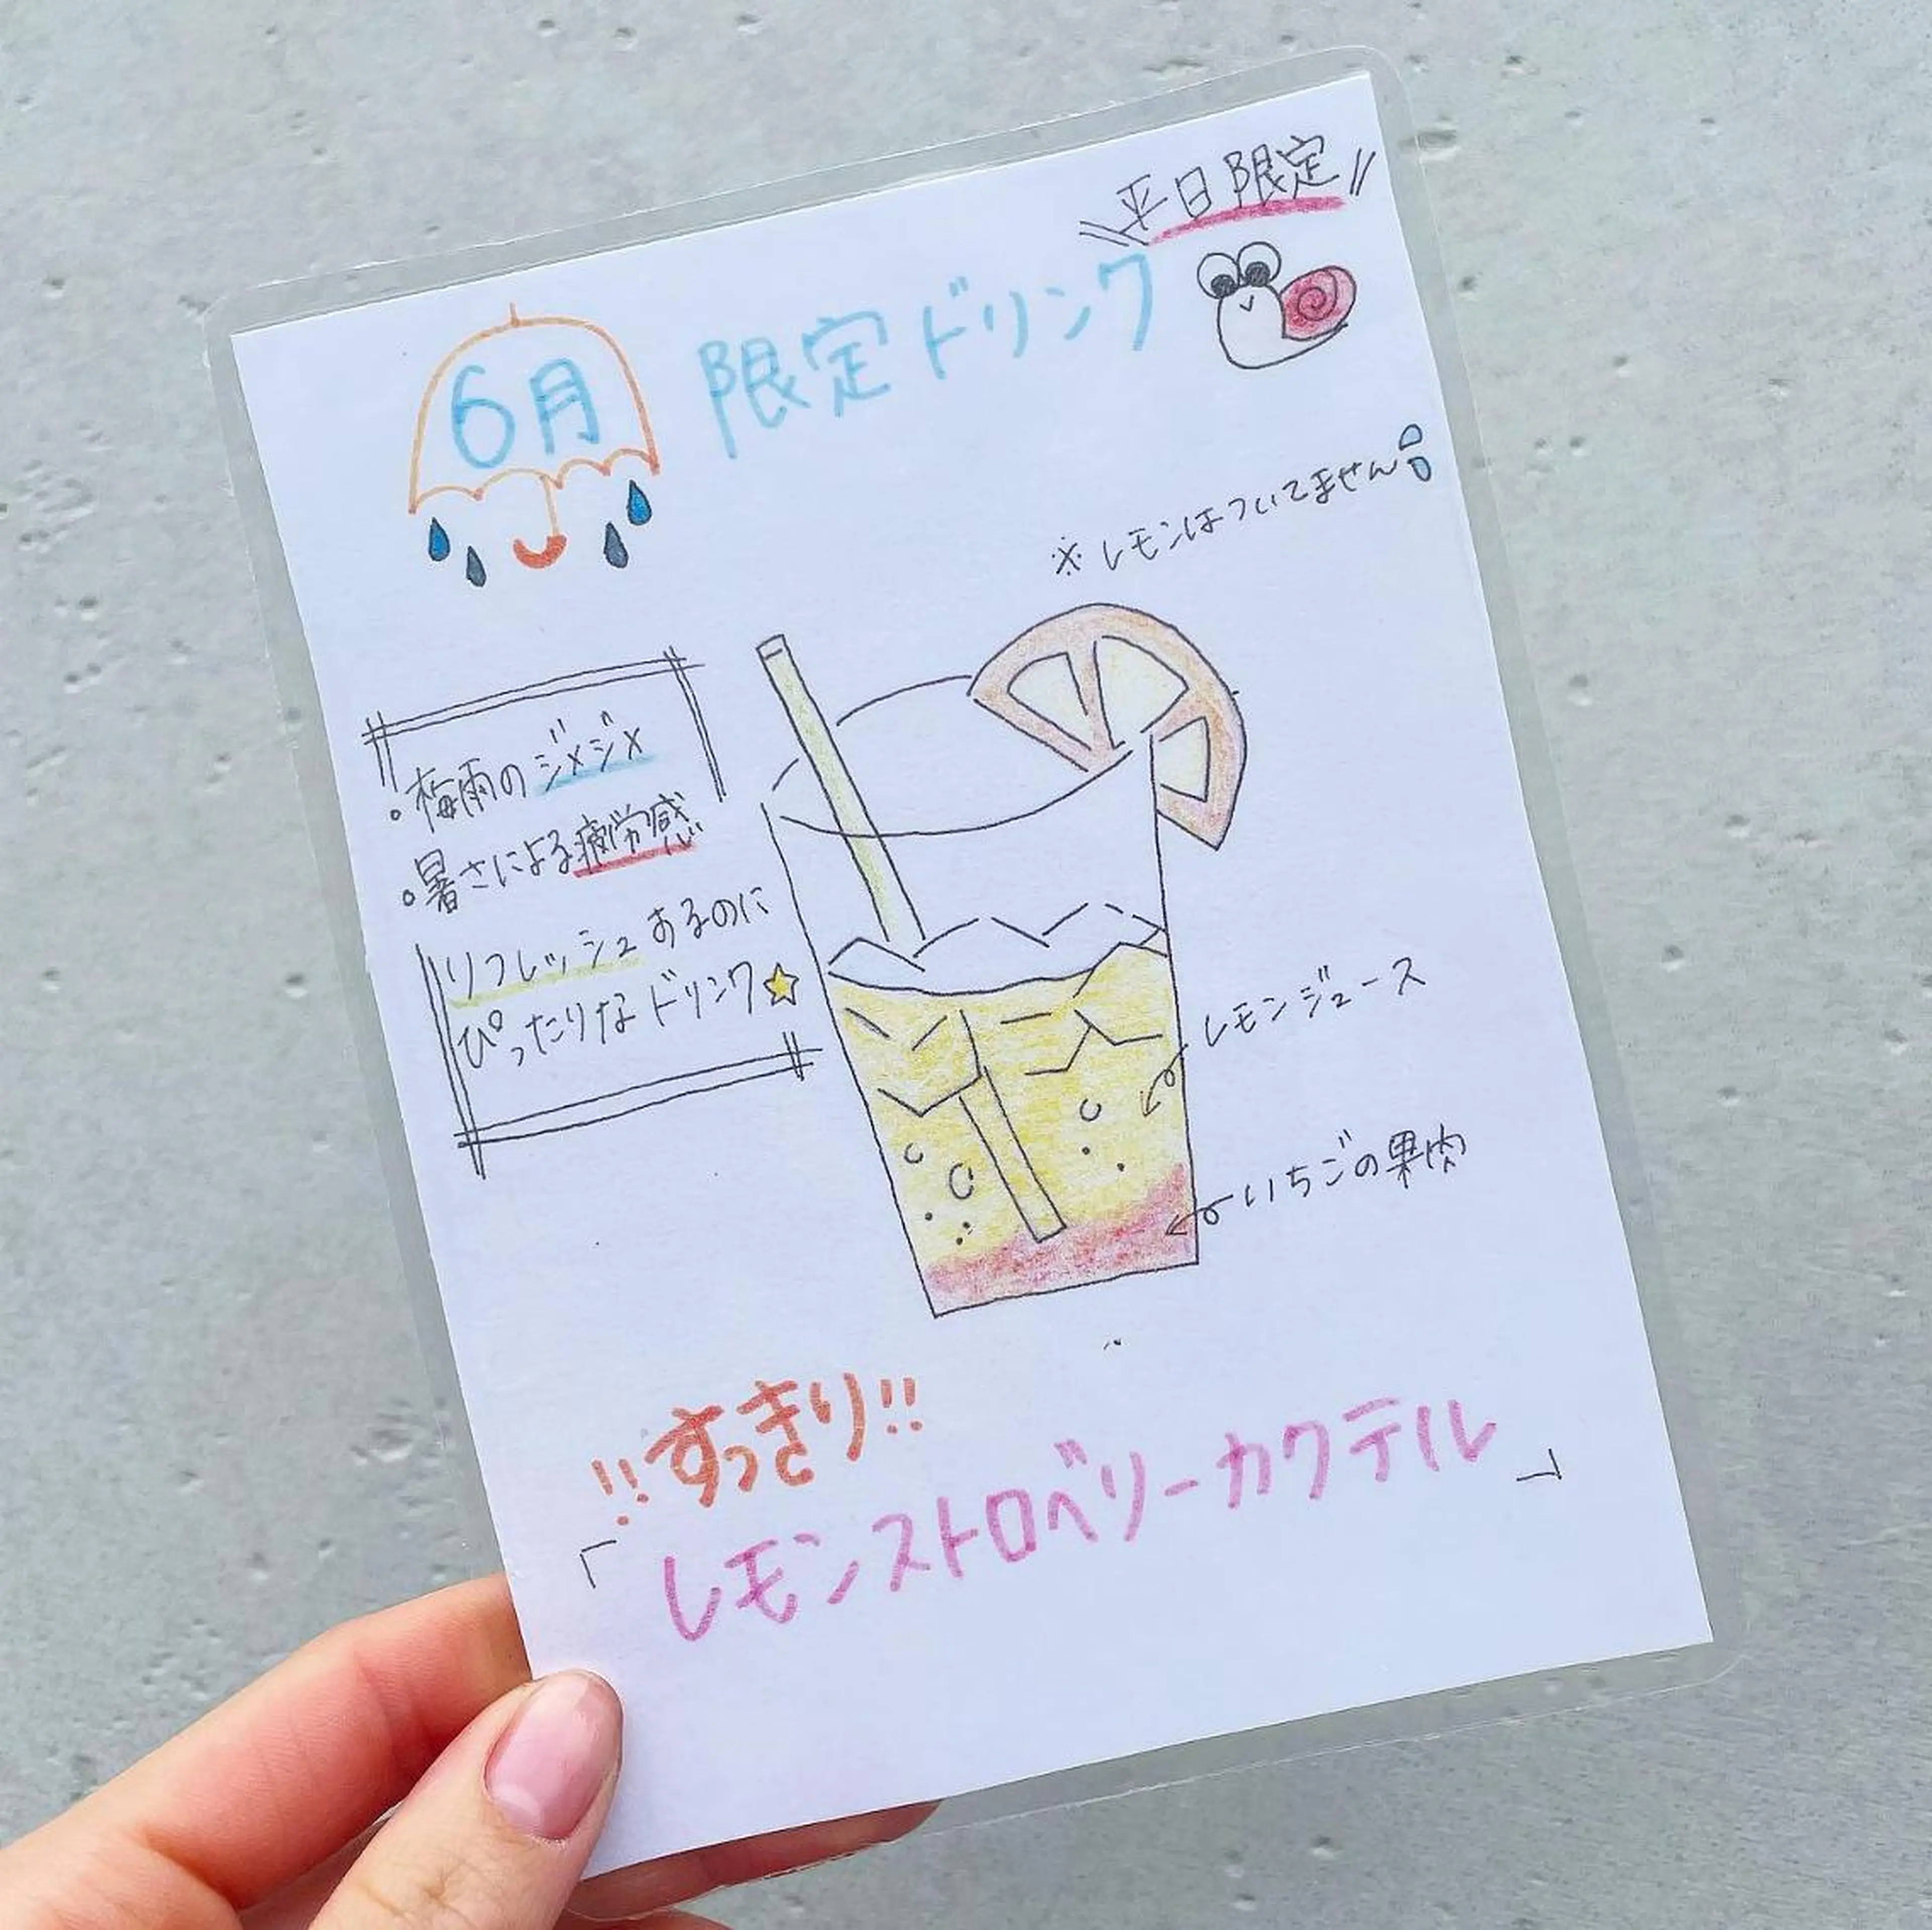 平日限定
6月 限定ドリンク
※レモンはついてません
・梅雨のジメジメ
・暑さによる疲労感
リフレッシュするのに
ぴったりなドリンク☆
レモンジュース
いちごの果肉
!!すっきり!!
「レモンストロベリーカクテル」